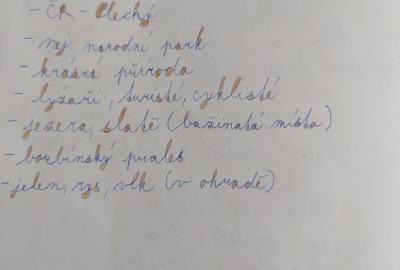 - ČR - Plechý
- nej. narodní park
- krásná příroda
- lyžaři, turisté, cyklisté
- jezera, slatě (bažinatá místa)
- borbínský prales
- jelen, rys, vlk (v ohradě)